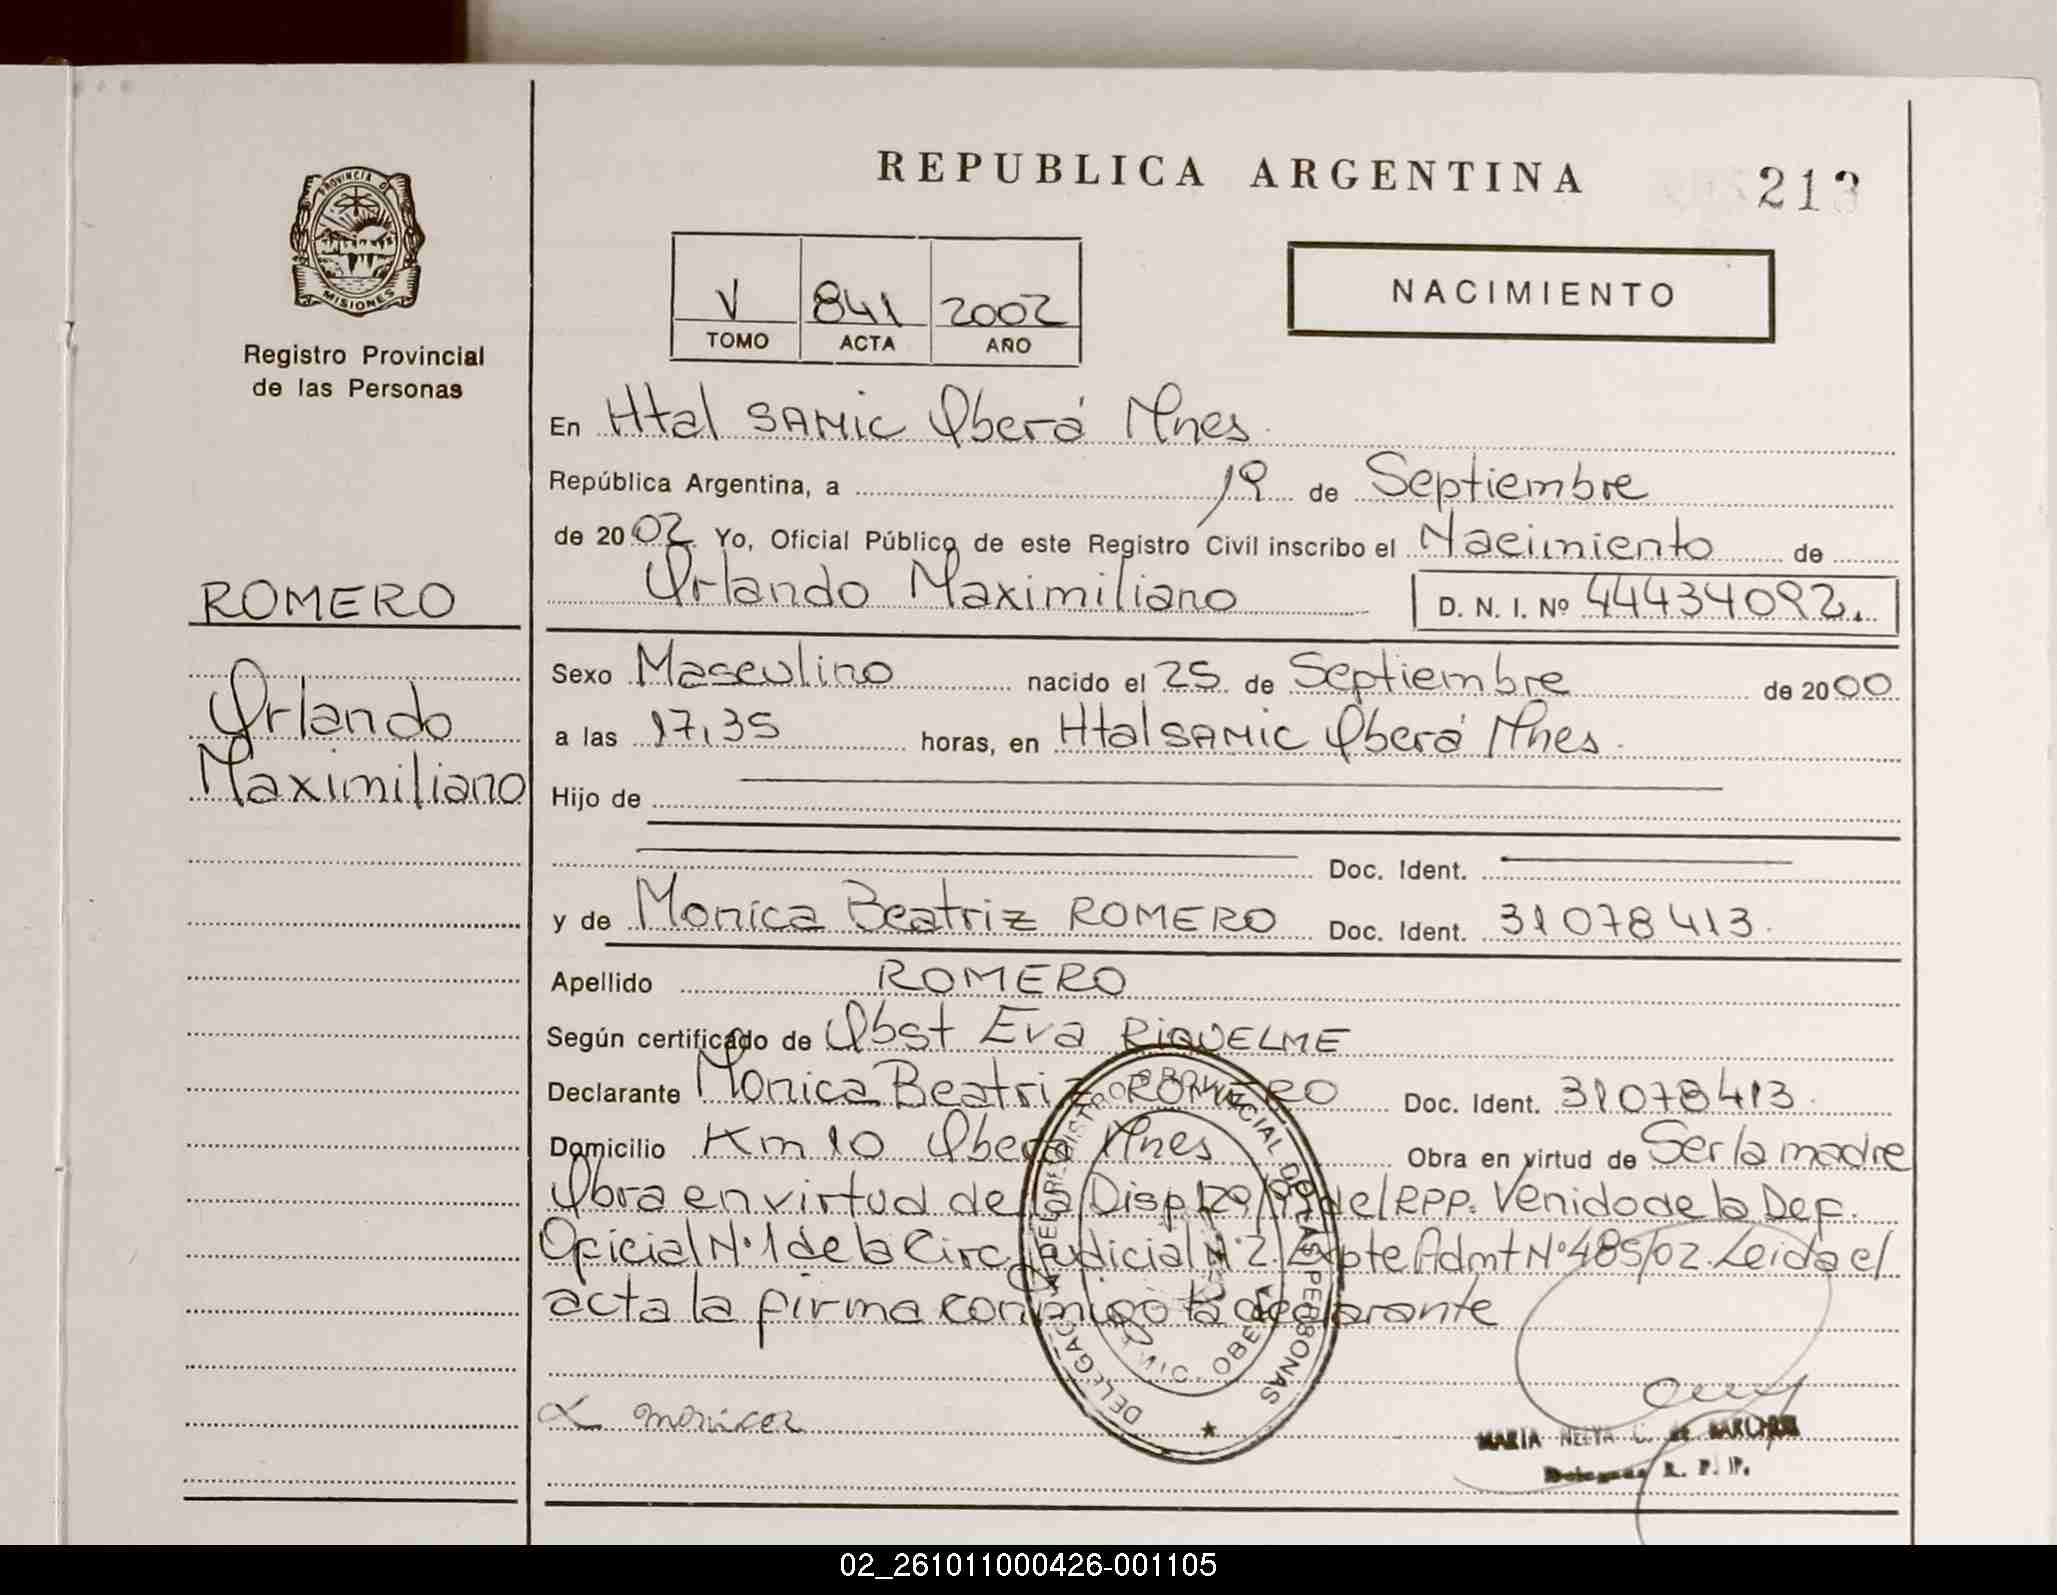 REPUBLICA ARGENTINA
213
PROVINCIA D
MISIONES
Registro Provincial
de las Personas
V 841 2002
TOMO ACTA AÑO
NACIMIENTO
En Htal SAMIC Oberá Mnes.
República Argentina, a 19 de Septiembre
de 2002 Yo, Oficial Público de este Registro Civil inscribo el Nacimiento de
Orlando Maximiliano D. N. I. Nº 44434092.
ROMERO
Orlando
Maximiliano
Sexo Masculino nacido el 25 de Septiembre de 2000
a las 17,35 horas, en Htal SAMIC Oberá Mnes.
Hijo de
Doc. Ident.
y de Monica Beatriz ROMERO Doc. Ident. 31078413.
Apellido ROMERO
Según certificado de Obst Eva RIQUELME
Declarante Monica Beatriz ROMERO Doc. Ident. 31078413.
Domicilio Km 10 Oberá Mnes Obra en virtud de Ser la madre
Obra en virtud de la Disp del RPP. Venido de la Def.
Oficial Nº 1 de la Circ. judicial Nº 2. Expte Admt Nº 485/02. Leida el
acta la firma conmigo la declarante
monica
DELEGAC DEL REGISTRO PROVINCIAL DE LAS PERSONAS
OBERA
MARIA NELYA de
Delegada R. P. P.
02_261011000426-001105